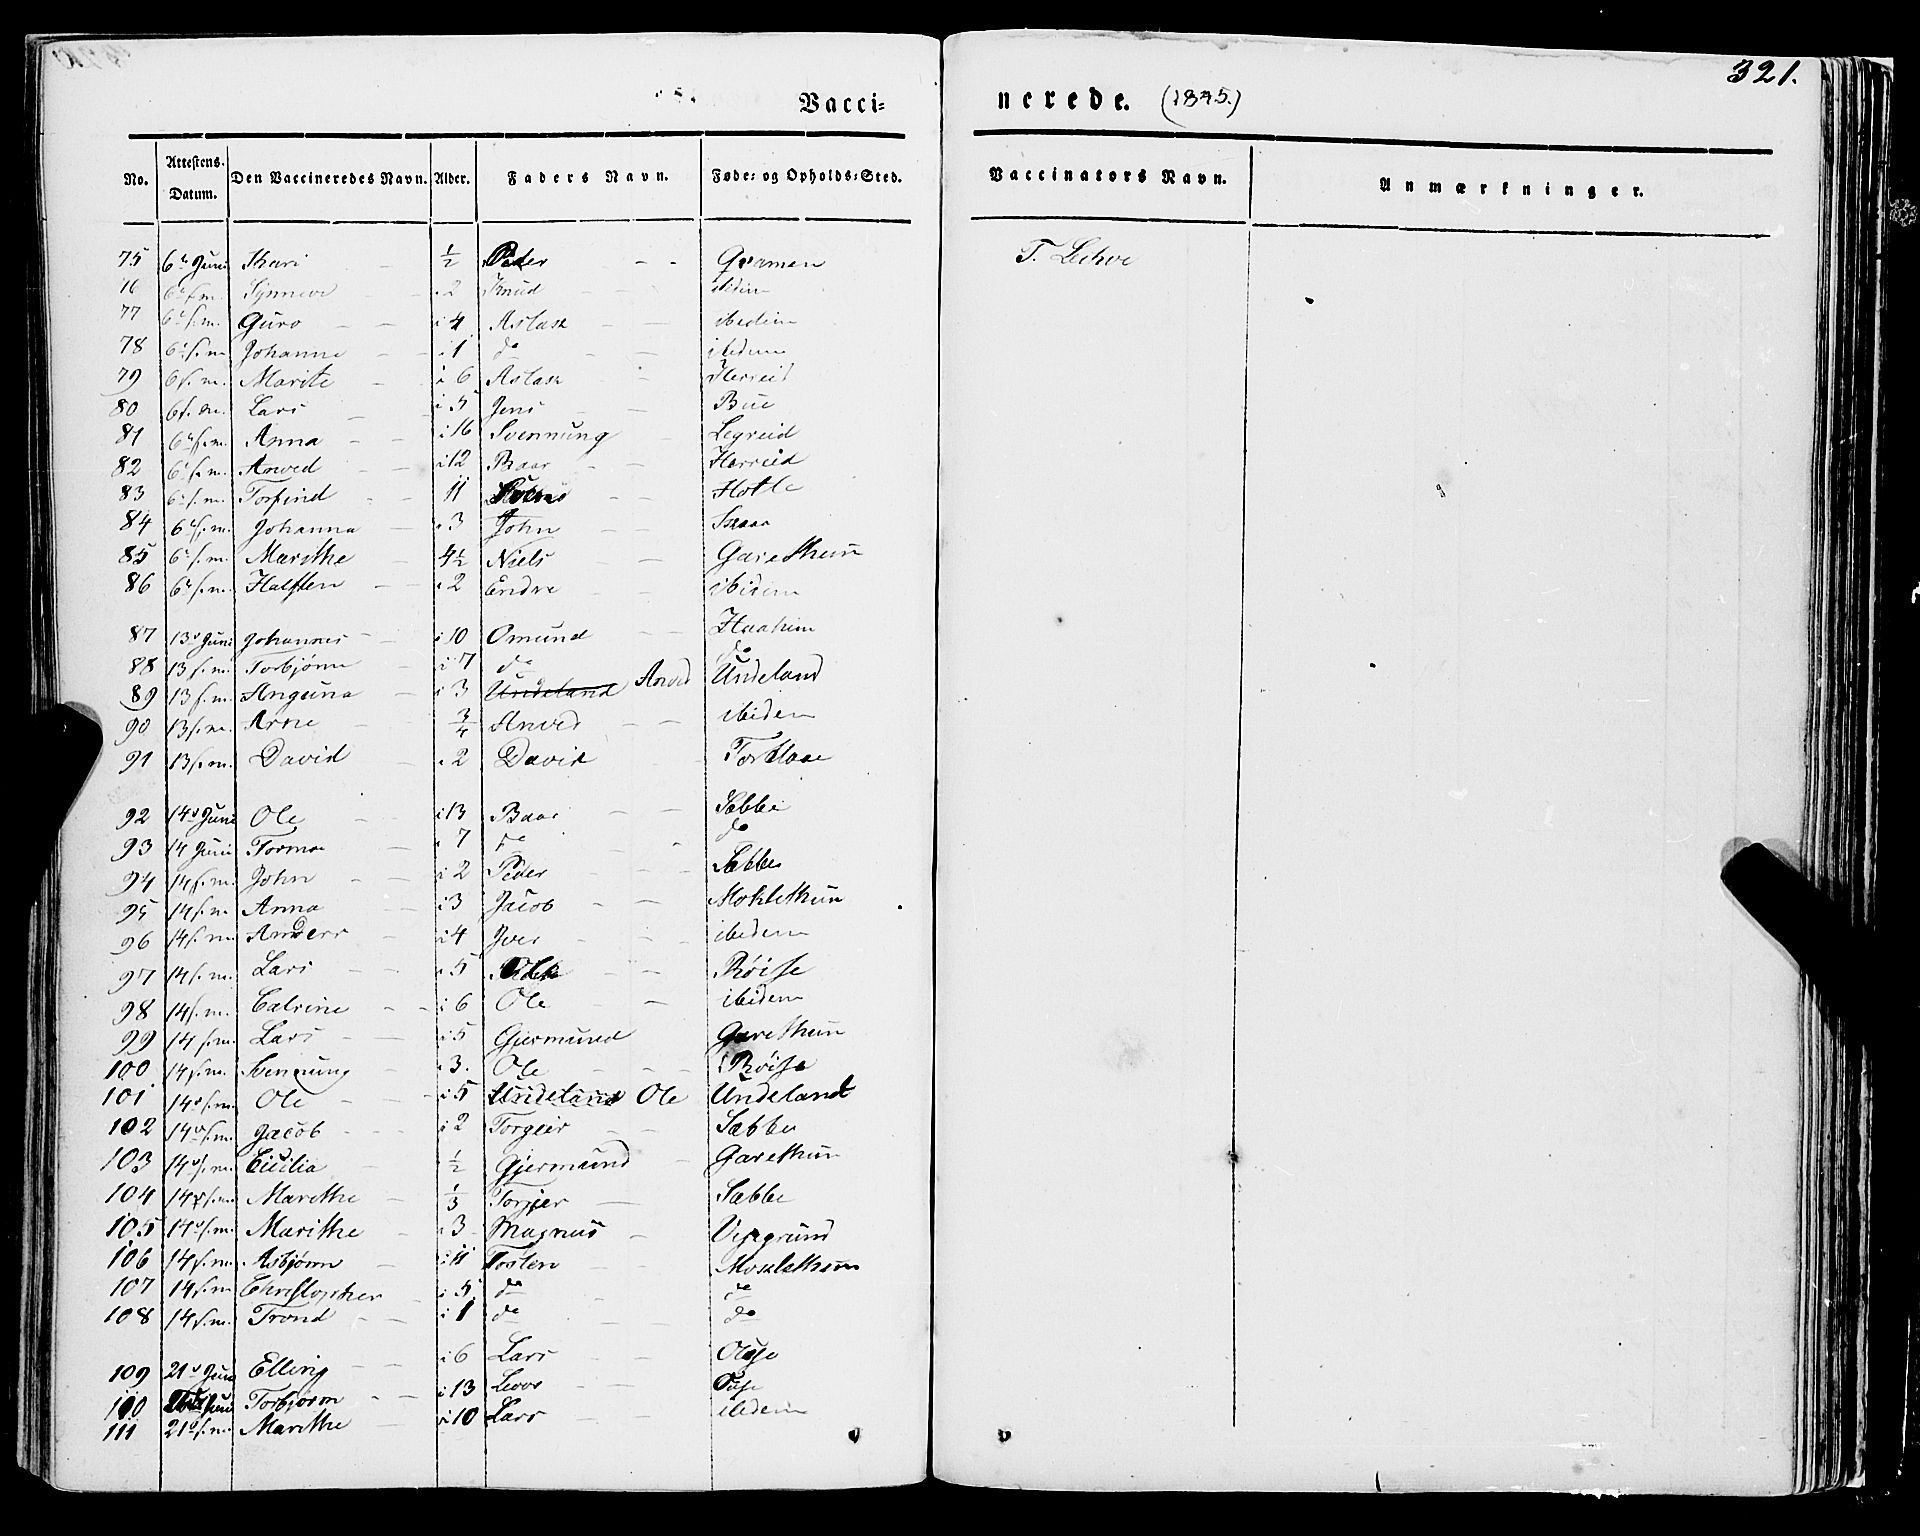 321.
Vacci= nerede. (1845.)
No. Attestens. Datum. Den Vaccineredes Navn. Alder. Faders Navn. Føde= og Opholds=Sted. Vaccinators Navn. Anmærkninger.
75 6 Juni Kari - 1/2 Peder - - Qvamen T. Lekve
76 6 s.m. Synneve - - 2 Knud - - ibidem
77 6 s.m. Guro - - i 4 Aslak - - ibidem
78 6 s.m. Johanne - - i 1 do - - ibidem
79 6 s.m. Marite - i 6 Aslak - Herreid
80 6 s.m. Lars - i 5 Jens - - Bue
81 6 s.m. Anna - - i 16 Svennung - Legreid
82 6 s.m. Anved - - i 12 Baar - - Herreid
83 6 s.m. Torfind - - 11 - - Hotle
84 6 s.m. Johanna - 3 John -
85 6 s.m. Marithe - 4½ Niels - - Garethun
86 6 s.m. Halsten - - 2 Endre - - ibidem
87 13 Juni Johannes - i 10 Omund - - Haaheim
88 13 s.m. Torbjørn - i 7 do do
89 13 s.m. Anguna - i 3 Undeland Anved Undeland
90 13 s.m. Arne - 3/4 Anved - - ibidem
91 13 s.m. David - 2 David -
92 14 Juni Ole - i 13 Baar - - Sæbbe
93 14 Juni - 7 do - do
94 14 s.m. John - - i 2 Peder - - - Sæbbe
95 14 s.m. Anna - i 3 Jacob - - Moklethun
96 14 s.m. Anders - i 4 Iver - - ibidem
97 14 s.m. Lars - - 5 - - Røise
98 14 s.m. Catrine - - i 6 Ole - - ibidem
99 14 s.m. Lars - - i 5 Gjermund Garethun
100 14 s.m. Svennung - 3. Ole - - - Røise
101 14 s.m. Ole - - i 5 Undeland Ole Undeland
102 14 s.m. Jacob - - - i 2 Torgeir - - Sæbbe
103 14 s.m. Cicilia - 1/2 Gjermund - Garethun
104 14 s.m. Marethe - 1/3 Torgier - Sæbbe
105 14 s.m. Marithe - 3 Magnus -
106 14 s.m. Asbjørn - i 11 Tosten - -
107 14 s.m. Christopher - i 5 do - do
108 14 s.m. Trond - - i 1 do - do
109 21 Juni Elling - - i 6 Lars - -
110 Juni Torbjørn - - i 13 - -
111 21 s.m. Marithe - i 10 Lars - - ibidem